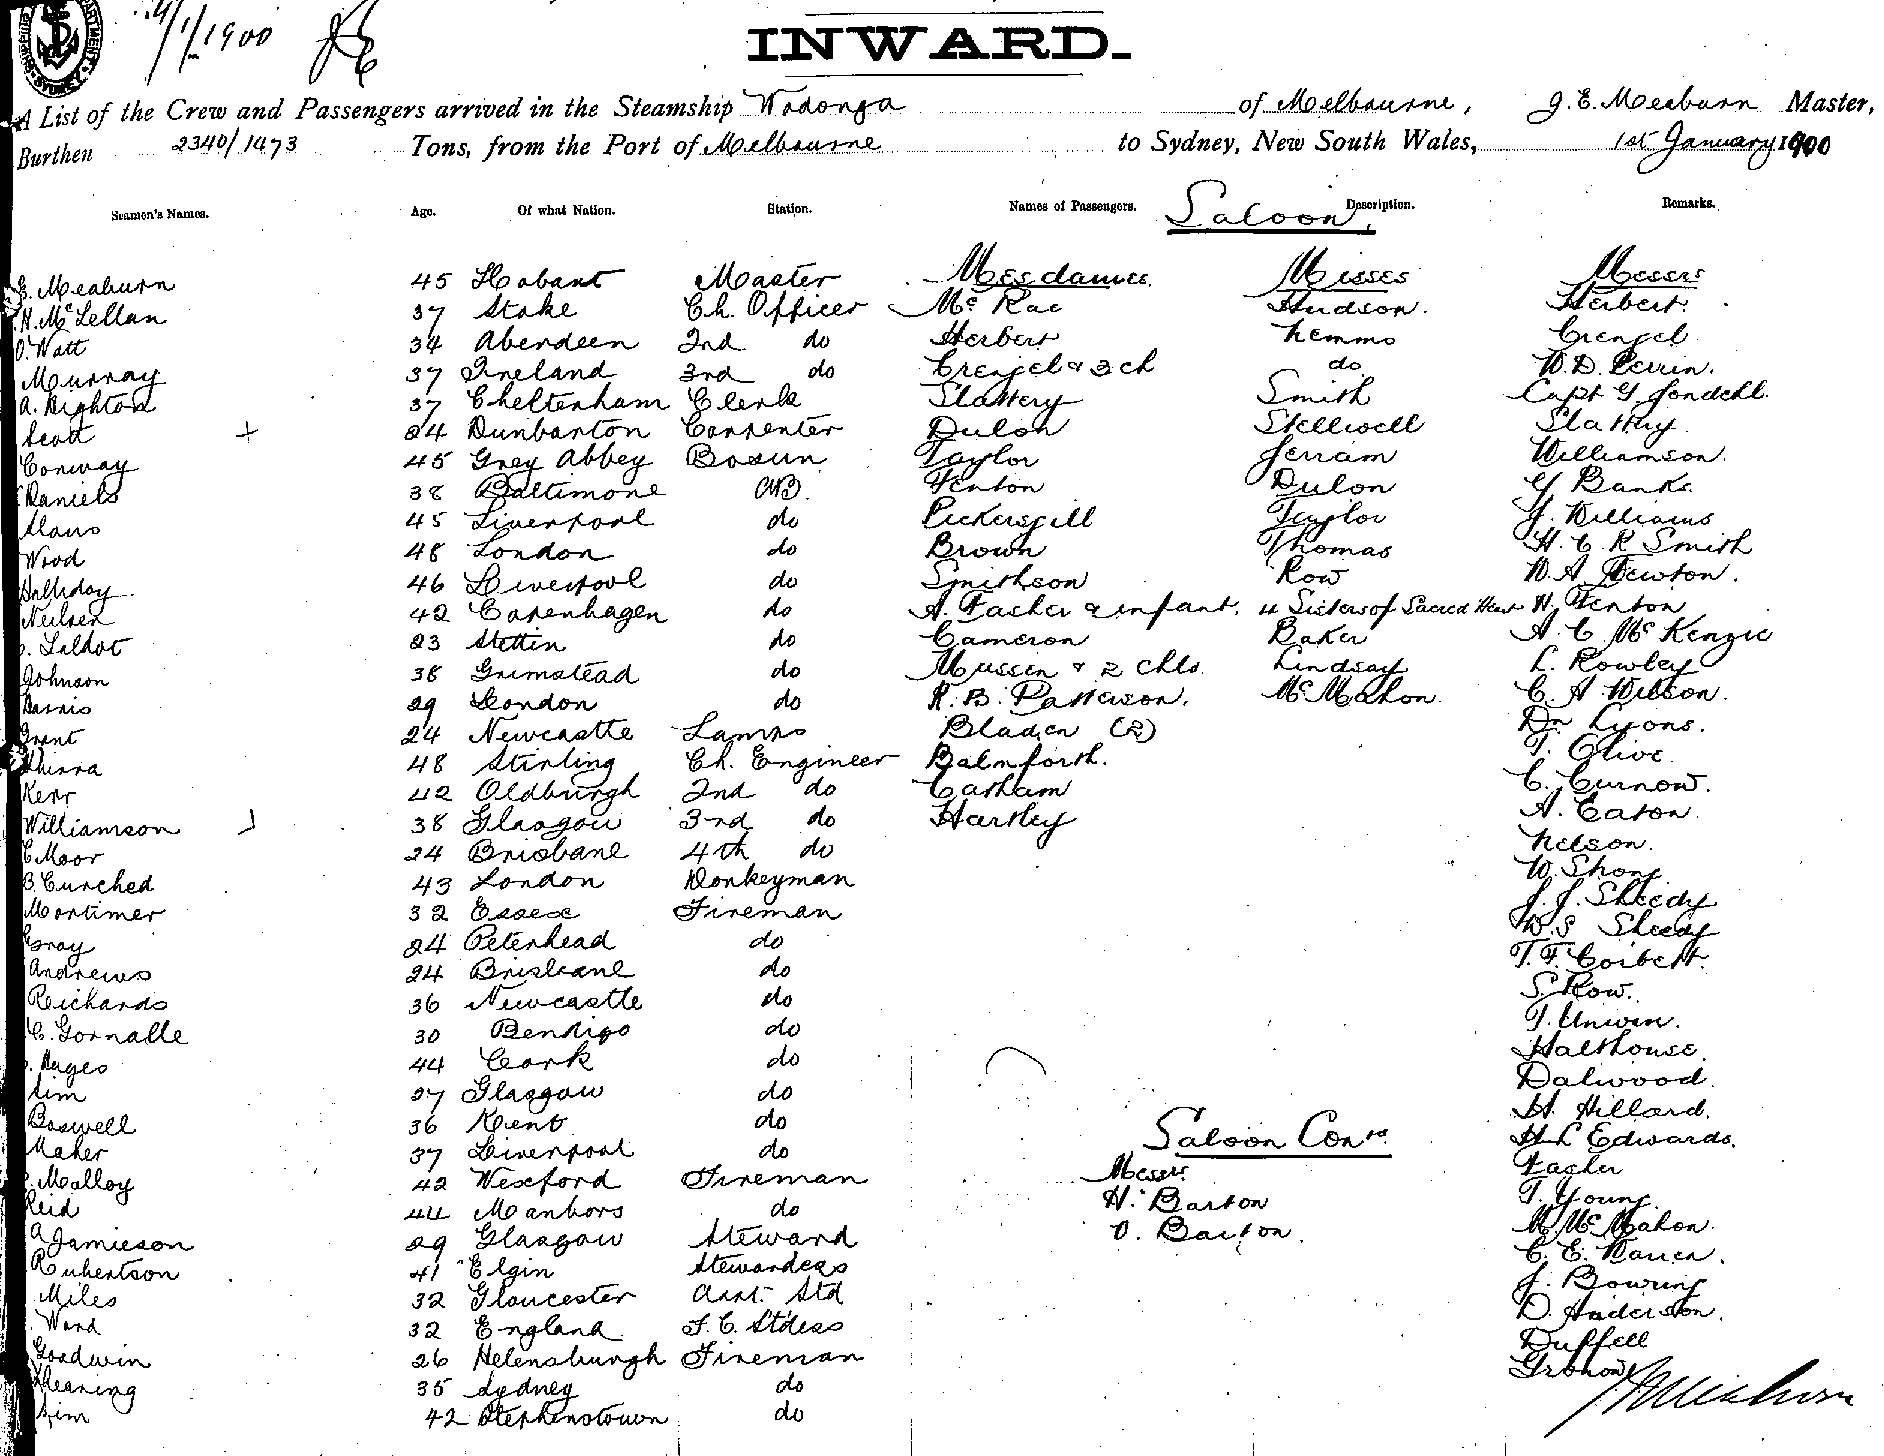 1/1/1900
INWARD.
A List of the Crew and Passengers arrived in the Steamship Wodonga of Melbourne, J. E. Meaburn Master,
Burthen 2340/1473 Tons, from the Port of Melbourne to Sydney, New South Wales, 1st January 1900
Seamen's Names. Age. Of what Nation. Station. Names of Passengers. Description. Remarks.
Saloon.
Mesdames Misses Messrs
Meaburn 45 Hobart Master Mc Rae Hudson. Herbert.
H. McLellan 37 Stoke Ch. Officer Herbert Nemmo Crengel
O. Watt 34 Aberdeen 2nd do Crengel & 3 ch do W. D. Perrin.
Murray 37 Ireland 3rd do Slattery Smith Capt G
A. Dighton 37 Cheltenham Clerk Dulon Stellwell Slattery
Scott 24 Dunbarton Carpenter Taylor Jerram Williamson.
Conway 45 Grey Abbey Bosun Fenton Dulon G Banks.
Daniels 38 Baltimore AB. Pickersgill Taylor J. Williams
45 Liverpool do Brown Thomas H. C. R Smith
Wood 48 London do Smithson Row W. A. Newton.
Halliday. 46 Liverpool do A. Fasher & infant. 4 Sisters of Sacred Heart H. Fenton
Neilsen 42 Copenhagen do Cameron Baker A. C. McKenzie
23 Stettin do Mussen & 2 Chls. Lindsay L. Rowley
Johnson 38 Grimstead do R. B. Patterson. McMahon. C. A Wilson.
29 London do Bladen (2) Dr Lyons.
Grant 24 Newcastle Lamps Balmforth. T. Olive.
48 Stirling Ch. Engineer Catham C. Curnow.
Kerr 42 Oldburgh 2nd do Hartley A. Eaton.
Williamson 38 Glasgow 3rd do Nelson.
Moor 24 Brisbane 4th do W. Shong
B. Curched 43 London Donkeyman J. J. Sheedy
Mortimer 32 Essex Fireman W. S Sheedy
Gray 24 Peterhead do T. F. Corbett.
Andrews 24 Brisbane do S. Row.
Reichards 36 Newcastle do T. Unwin.
C. Gornalle 30 Bendigo do Halthouse.
Hayes 44 Cork do Dalwood.
Sim 27 Glasgow do H. Hillard.
Boswell 36 Kent do H L Edwards.
Maher 37 Liverpool do Fasher
Malloy 42 Wexford Fireman T. Young.
Reid 44 Manbors do M. McMahon.
A Jamieson 29 Glasgow Steward C. E. Warren.
Robertson 41 Elgin Stewardess J. Bowring
Miles 32 Gloucester Asst. Std D. Anderson.
Ward 32 England F. C. Stdess Duffell
Goodwin 26 Helensburgh Fireman
35 Sydney do
Sim 42 Stephenstown do
Saloon Contd.
Messrs.
H. Barton
O. Barton.